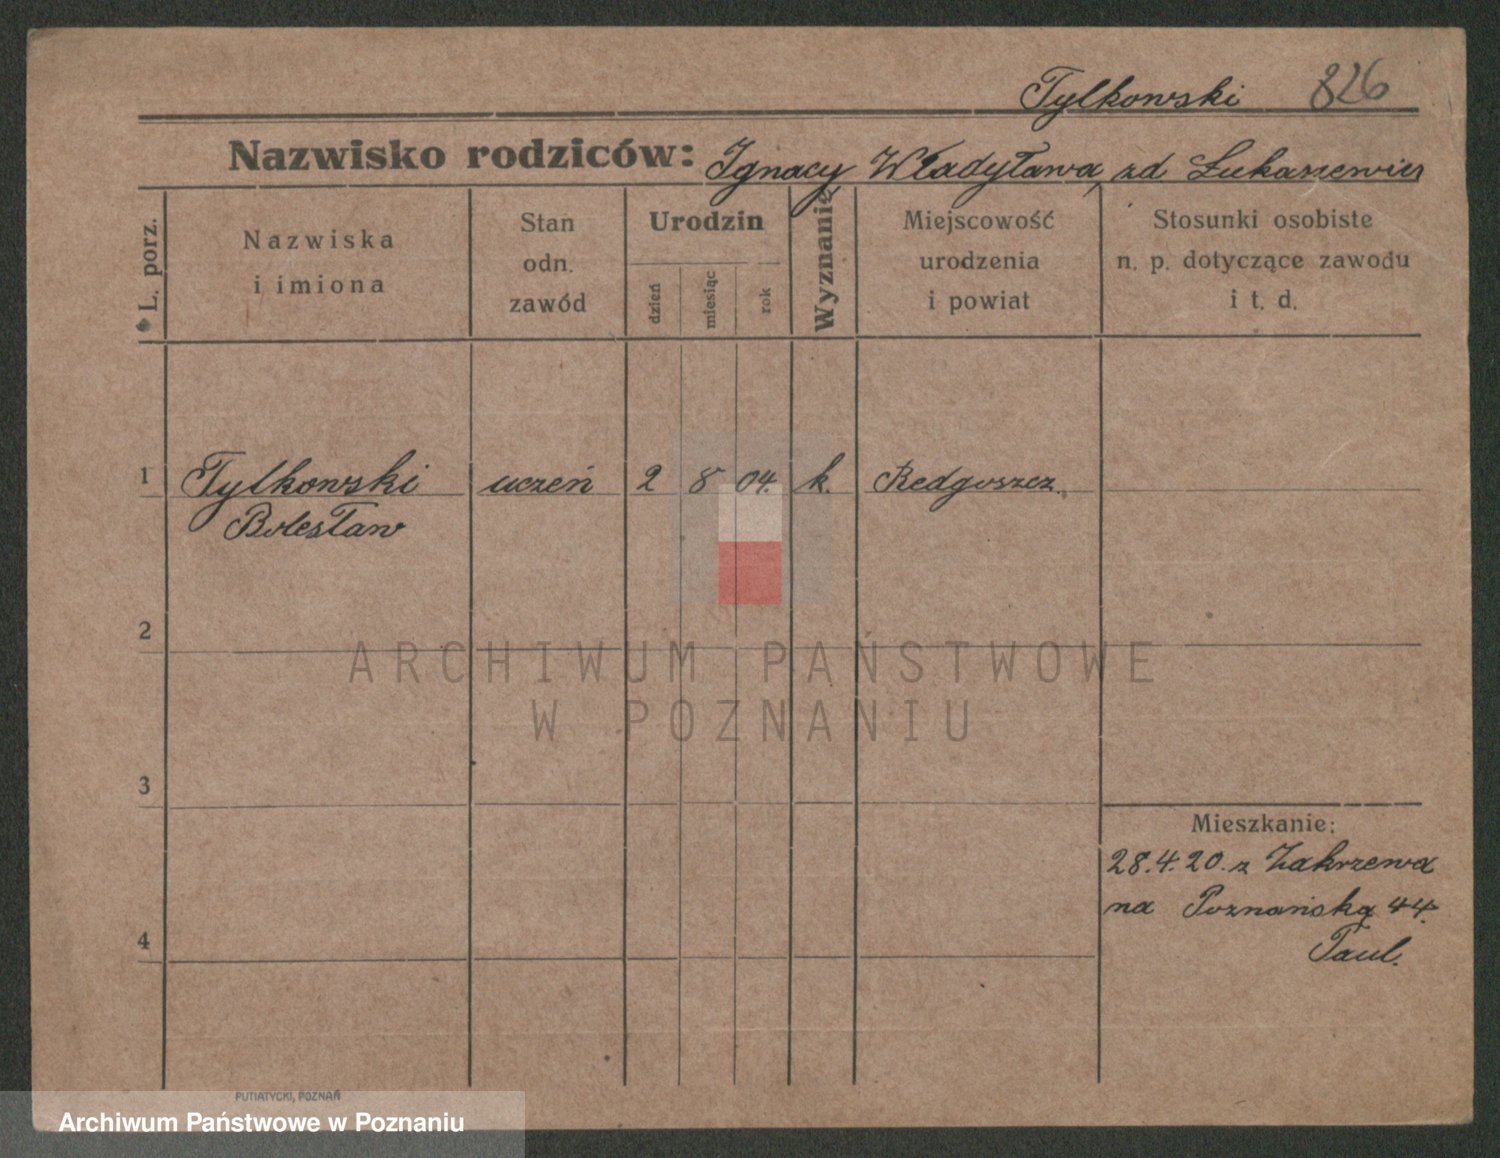 Tylkowski 826
Nazwisko rodziców: Ignacy Władysława, zd Łukaszewicz
L. porz.
Nazwiska
i imiona
Stan
odn.
zawód
Urodzin
dzień
miesiąc
rok
Wyznanie
Miejscowość
urodzenia
i powiat
Stosunki osobiste
n. p. dotyczące zawodu
i t. d.
1 Tylkowski uczeń 2 8 04. k. Redgoszcz.
Bolesław
2
ARCHIWUM PAŃSTWOWE
W POZNANIU
3
Mieszkanie:
28.4.20. z Zakrzewa
na Poznańską 44.
Paul.
4
PUTIATYCKI, POZNAŃ
Archiwum Państwowe w Poznaniu